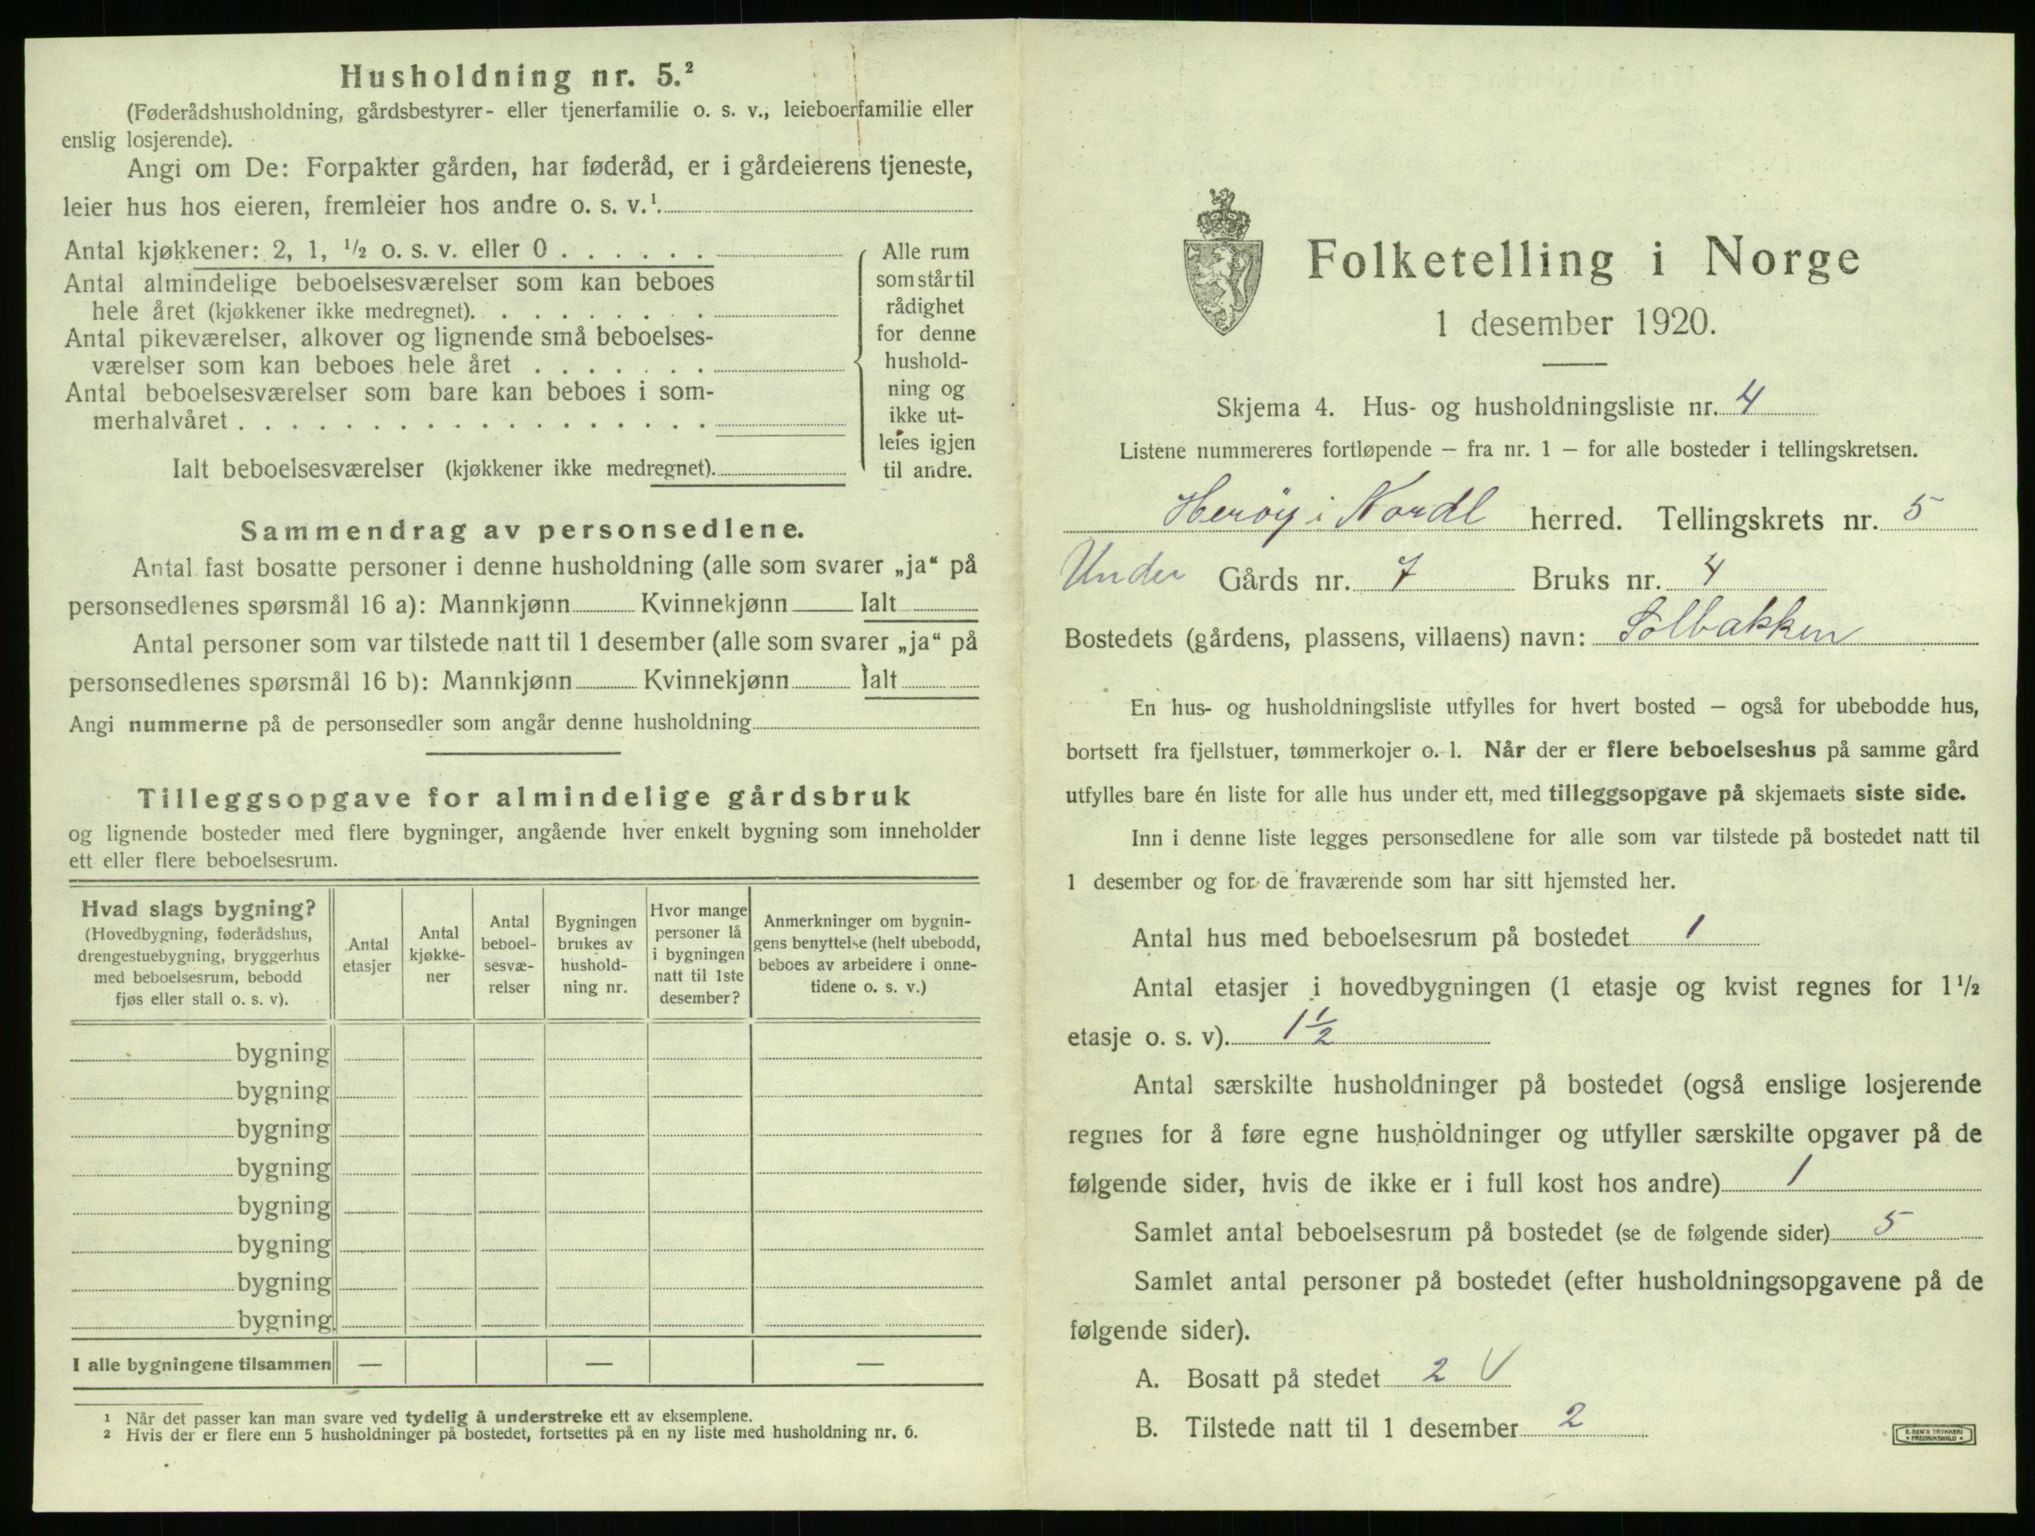 Husholdning nr. 5.²
(Føderådshusholdning, gårdsbestyrer- eller tjenerfamilie o. s. v., leieboerfamilie eller
enslig losjerende).
Angi om De: Forpakter gården, har føderåd, er i gårdeierens tjeneste,
leier hus hos eieren, fremleier hos andre o. s. v.¹
Antal kjøkkener: 2, 1, ½ o. s. v. eller 0 . . . . . .
Antal almindelige beboelsesværelser som kan beboes
hele året (kjøkkener ikke medregnet). . . . . . . . .
Antal pikeværelser, alkover og lignende små beboelses-
værelser som kan beboes hele året . . . . . . .
Antal beboelsesværelser som bare kan beboes i som-
merhalvåret . . . . . . . . . . . . . . . . . .
Ialt beboelsesværelser (kjøkkener ikke medregnet).
Alle rum
som står til
rådighet
for denne
hushold-
ning og
ikke ut-
leies igjen
til andre.
Sammendrag av personsedlene.
Antal fast bosatte personer i denne husholdning (alle som svarer „ja“ på
personsedlenes spørsmål 16 a): Mannkjønn Kvinnekjønn Ialt
Antal personer som var tilstede natt til 1 desember (alle som svarer „ja“ på
personsedlenes spørsmål 16 b): Mannkjønn Kvinnekjønn Ialt
Angi nummerne på de personsedler som angår denne husholdning
Tilleggsopgave for almindelige gårdsbruk
og lignende bosteder med flere bygninger, angående hver enkelt bygning som inneholder
ett eller flere beboelsesrum.
Hvad slags bygning?
(Hovedbygning, føderådshus,
drengestuebygning, bryggerhus
med beboelsesrum, bebodd
fjøs eller stall o. s. v).
Antal
etasjer
Antal
kjøkke-
ner
Antal
beboel-
sesvæ-
relser
Bygningen
brukes av
hushold-
ning nr.
Hvor mange
personer lå
i bygningen
natt til 1ste
desember?
Anmerkninger om bygnin-
gens benyttelse (helt ubebodd,
beboes av arbeidere i onne-
tidene o. s. v.)
bygning
bygning
bygning
bygning
bygning
bygning
bygning
bygning
I alle bygningene tilsammen — — —
¹ Når det passer kan man svare ved tydelig å understreke ett av eksemplene.
² Hvis der er flere enn 5 husholdninger på bostedet, fortsettes på en ny liste med husholdning nr. 6.
Folketelling i Norge
1 desember 1920.
Skjema 4. Hus- og husholdningsliste nr. 4
Listene nummereres fortløpende – fra nr. 1 – for alle bosteder i tellingskretsen.
Herøy i Nordl herred. Tellingskrets nr. 5
Under Gårds nr. 7 Bruks nr. 4
Bostedets (gårdens, plassens, villaens) navn: Solbakken
En hus- og husholdningsliste utfylles for hvert bosted – også for ubebodde hus,
bortsett fra fjellstuer, tømmerkojer o. l. Når der er flere beboelseshus på samme gård
utfylles bare én liste for alle hus under ett, med tilleggsopgave på skjemaets siste side.
Inn i denne liste legges personsedlene for alle som var tilstede på bostedet natt til
1 desember og for de fraværende som har sitt hjemsted her.
Antal hus med beboelsesrum på bostedet 1
Antal etasjer i hovedbygningen (1 etasje og kvist regnes for 1½
etasje o. s. v). 1½
Antal særskilte husholdninger på bostedet (også enslige losjerende
regnes for å føre egne husholdninger og utfyller særskilte opgaver på de
følgende sider, hvis de ikke er i full kost hos andre) 1
Samlet antal beboelsesrum på bostedet (se de følgende sider) 5
Samlet antal personer på bostedet (efter husholdningsopgavene på de
følgende sider).
A. Bosatt på stedet 2 V
B. Tilstede natt til 1 desember 2
E. SEM'S TRYKKERI
FREDRIKSHALD